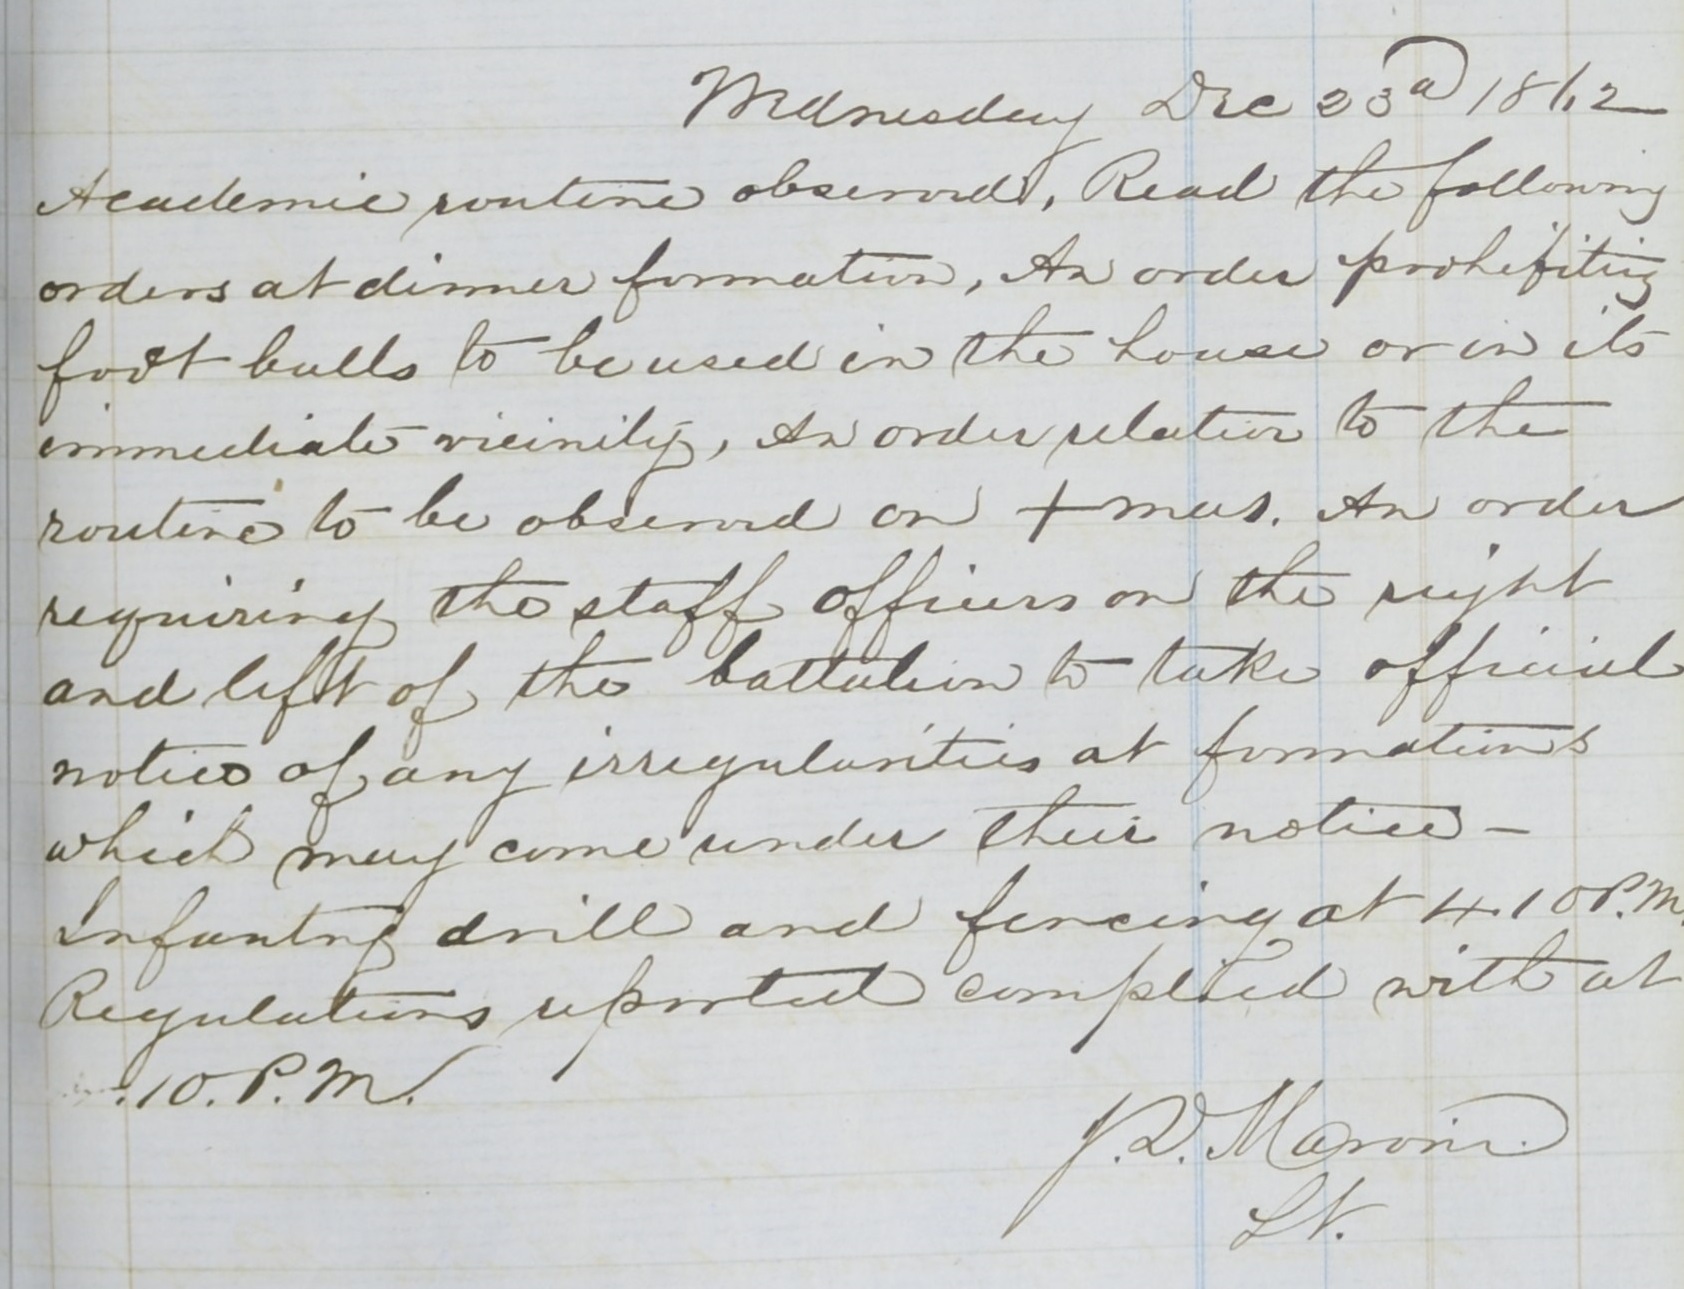 Wednesday Dec 23d 1862
Academic routine observed, Read the following
orders at dinner formation, An order prohibiting
foot balls to be used in the house or in its
immediate vicinity, An order relative to the
routine to be observed on +mas. An order
requiring the staff officers on the right
and left of the battalion to take official
notice of any irregularities at formations
which may come under their notice -
Infantry drill and fencing at 4.10 P.M.
Regulations reported complied with at
.10. P.M.
J. D. Marvin.
Lt.